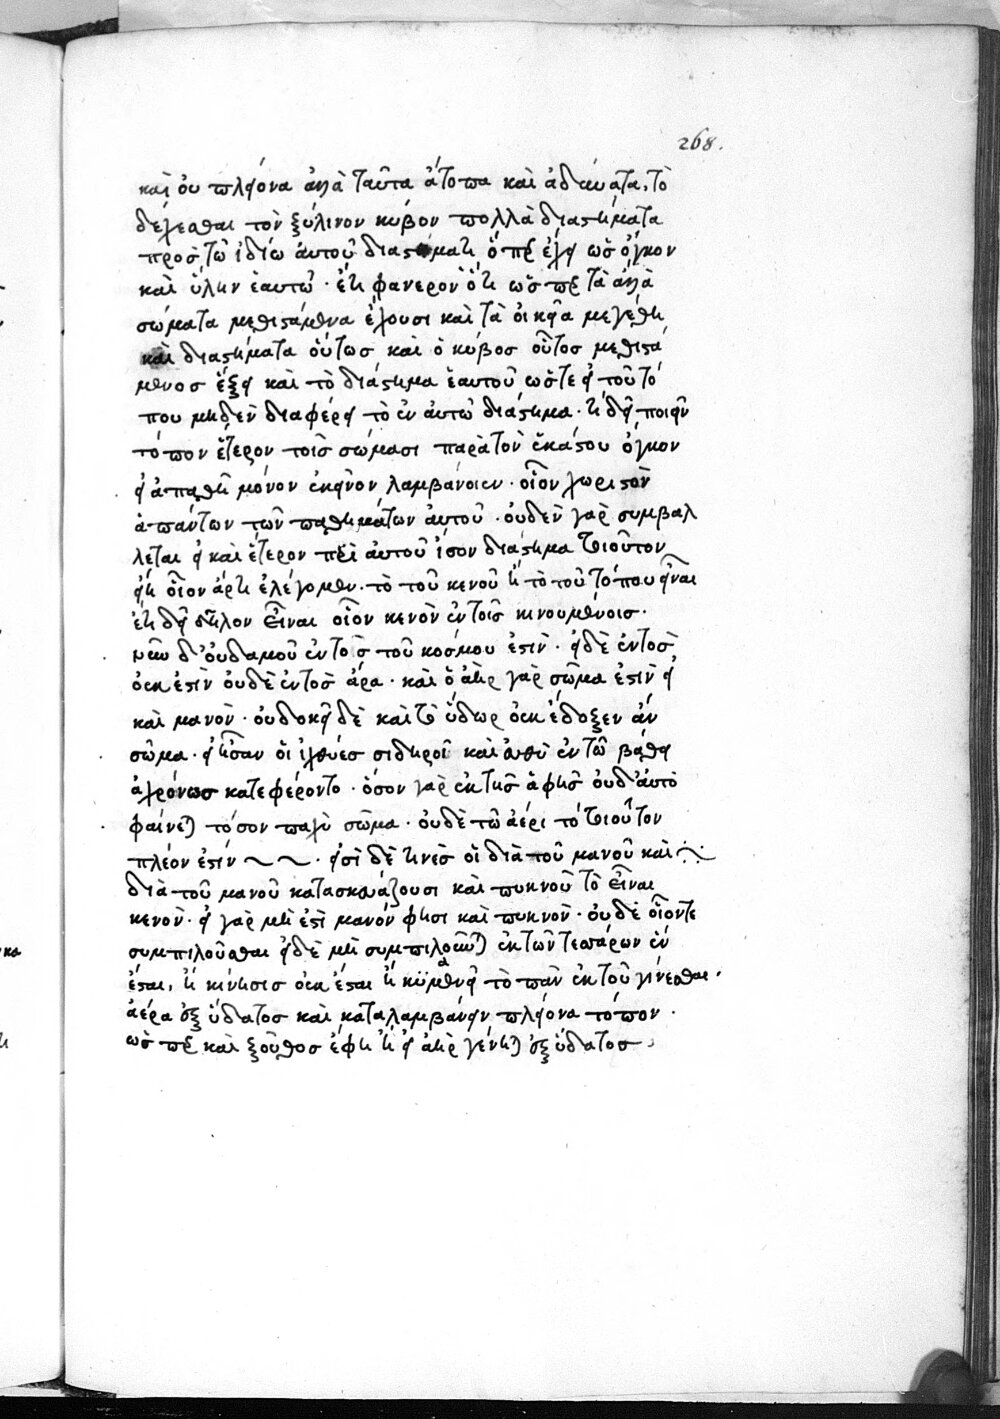 268.
καὶ οὐ πλείονα ἀλλὰ ταῦτα ἄτοπα καὶ ἀδύνατα, τὸ
δέχεσθαι τὸν ξύλινον κύβον πολλὰ διαστήματα
πρὸς τῶ ἰδίω αὐτοῦ διαστήματι ὅπερ ἔχει ὡς ὄγκον
καὶ ὕλην ἑαυτῶ · ἔτι φανερὸν ὅτι ὥσπερ τὰ ἀλλὰ
σώματα μεθιστάμενα ἔχουσι καὶ τὰ οἰκεῖα μεγέθη
καὶ διαστήματα οὕτως καὶ ὁ κύβος οὗτος μεθιστά
μενος ἕξει καὶ τὸ διάστημα ἑαυτοῦ ὥστε εἰ τοῦ τό
που μηδὲν διαφέρει τὸ ἐν αὐτῶ διάστημα · τί δεῖ ποιεῖν
τόπον ἕτερον τοῖς σώμασι παρὰ τὸν ἑκάστου ὄγκον
εἰ ἀπαθῆ μόνον ἐκεῖνον λαμβάνοιεν · οἷον χωριστὸν
ἁπάντων τῶν παθημάτων αὐτοῦ · οὐδὲν γὰρ συμβάλ
λεται εἰ καὶ ἕτερον περὶ αὐτοῦ ἴσον διάστημα τοιοῦτον
εἴη οἷον ἄρτι ἐλέγομεν · τὸ τοῦ κενοῦ ἢ τὸ τοῦ τόπου εἶναι
ἔτι δεῖ δῆλον εἶναι οἷον κενὸν ἐν τοῖς κινουμένοις ·
νῦν δ' οὐδαμοῦ ἐντὸς τοῦ κόσμου ἐστὶν · εἰ δὲ ἐντὸς
οὐκ ἐστὶν οὐδὲ ἐντὸς ἄρα · καὶ ὁ ἀὴρ γὰρ σῶμα ἐστὶν εἰ
καὶ μανὸν · οὐ δοκεῖ δὲ καὶ τὸ ὕδωρ οὐκ ἔδοξεν ἂν
σῶμα · εἰ ἦσαν οἱ ἰχθύες σιδηροῖ καὶ εὐθὺ ἐν τῶ βάθει
ἀχρόνως κατεφέροντο · ὅσον γὰρ ἐκ τῆς ἁφῆς οὐδ' αὐτὸ
φαίνεται τόσον παχὺ σῶμα · οὐδὲ τῶ ἀέρι τὸ τοιοῦτον
πλέον ἐστίν · εἰσὶ δέ τινες οἱ διὰ τοῦ μανοῦ καὶ
διὰ τοῦ μανοῦ κατασκευάζουσι καὶ πυκνοῦ τὸ εἶναι
κενὸν · εἰ γὰρ μὴ ἐστὶ μανόν φησι καὶ πυκνὸν · οὐδὲ οἷόντε
συμπιλοῦσθαι εἰ δὲ μὴ συμπιλοῦνται ἐκ τῶν τεσσάρων ἓν
ἔσται, ἢ κίνησις οὐκ ἔσται ἢ κυμανεῖ τὸ πᾶν ἐκ τοῦ γίνεσθαι ·
ἀέρα ἐξ ὕδατος καὶ καταλαμβάνειν πλείονα τόπον ·
ὥσπερ καὶ ξοῦθος ἔφη ἢ εἰ ἀὴρ γένηται ἐξ ὕδατος